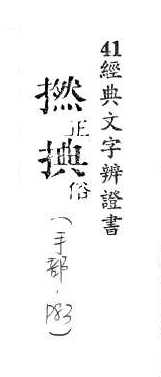 41經典文字辨證書
撚正捵俗(手部,P83)